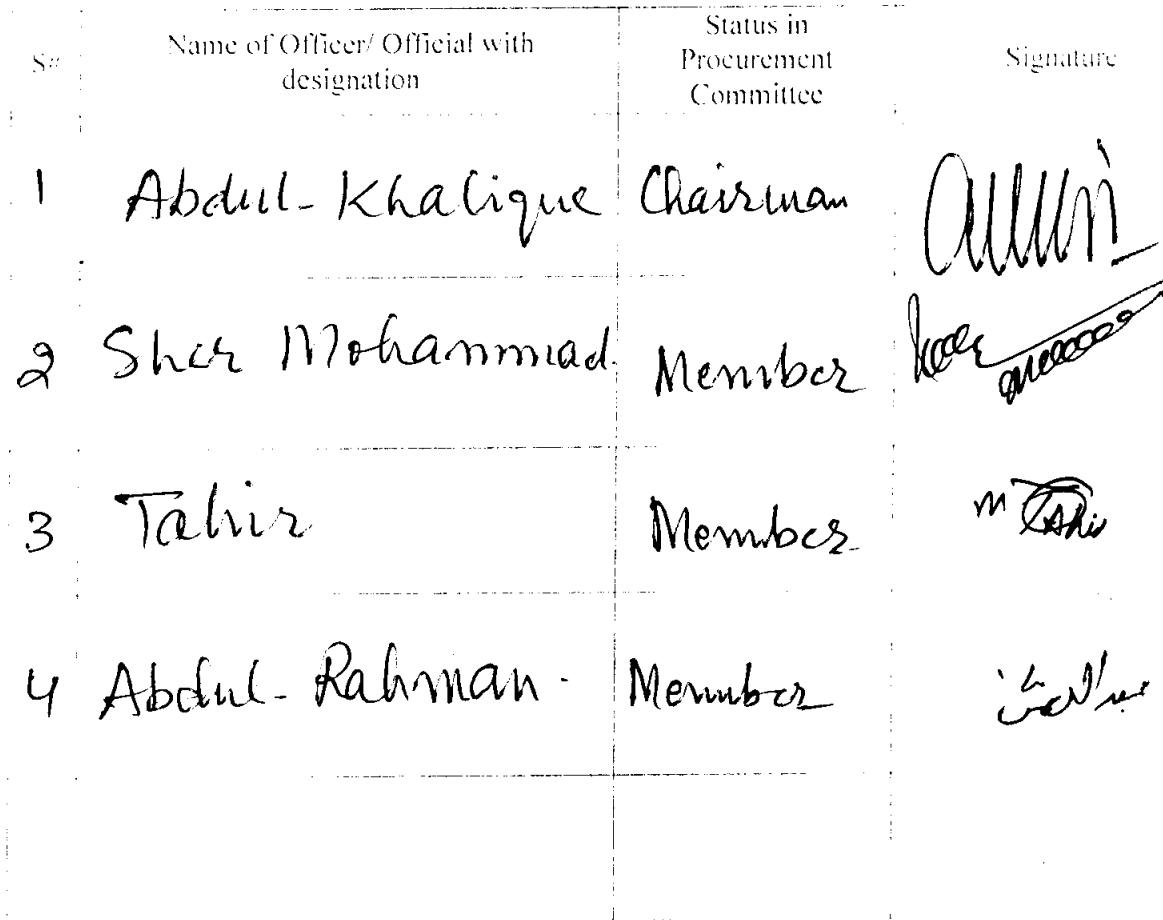 S# Name of Officer/ Official with designation Status in Procurement Committee Signature
1 Abdul-Khalique Chairman
2 Sher Mohammad. Member
3 Tahir Member M Tahir
4 Abdul-Rahman. Member عبدالرحمن